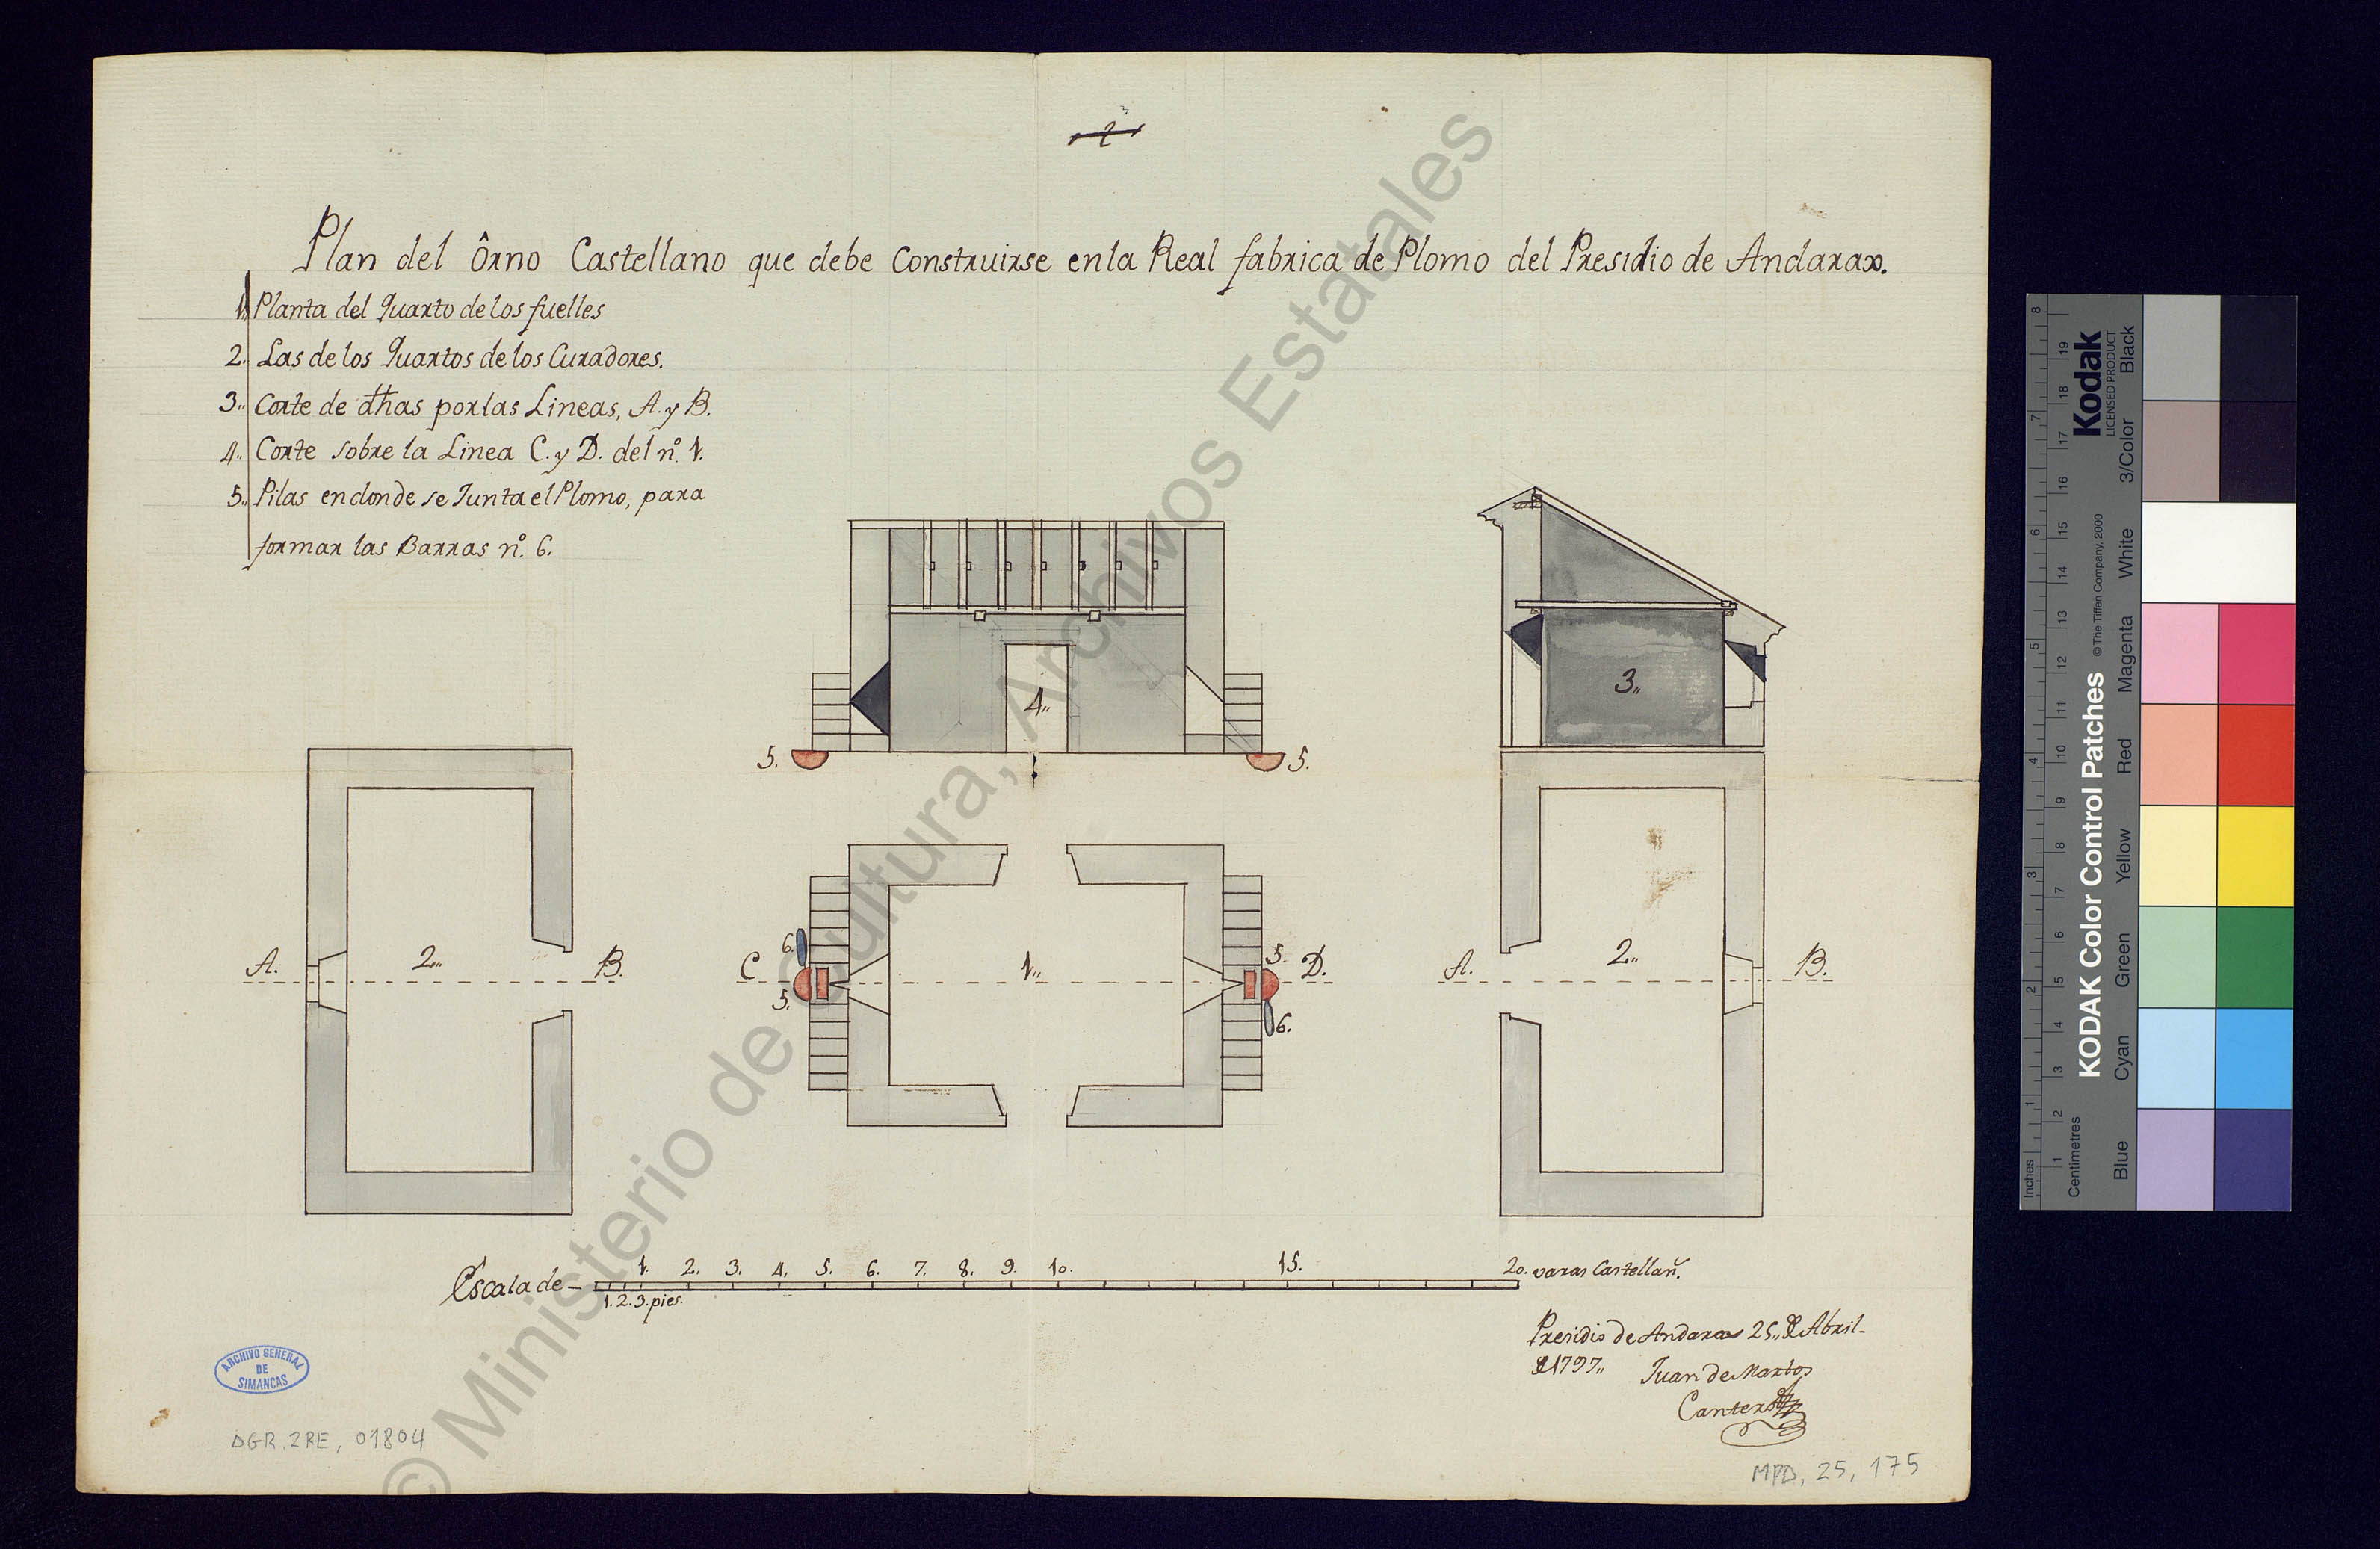 2
Plan del Ôrno Castellano que debe Construirse en la Real fabrica de Plomo del Presidio de Andarax.
1.. Planta del Quarto de los fuelles
2. Las de los Quartos de los Curadores.
3.. Corte de dhas por las Lineas, A. y B.
4.. Corte sobre la Linea C. y D. del nº. 1.
5.. Pilas en donde se Junta el Plomo, para
formar las Barras nº. 6.
4..
3..
5.
5.
A.
2..
B.
C
6.
5.
1..
5.
D.
6.
A.
2..
B.
Escala de
1. 2. 3. 4. 5. 6. 7. 8. 9. 10. 15. 20. varas Castellañ.
1. 2. 3. pies.
Presidio de Andarax 25.. de Abril
de 1797..
Juan de Martos
ARCHIVO GENERAL
DE
SIMANCAS
DGR, 2RE, 01804
MPD, 25, 175
© Ministerio de Cultura, Archivos Estatales
Kodak
LICENSED PRODUCT
KODAK Color Control Patches
© The Tiffen Company, 2000
Blue Cyan Green Yellow Red Magenta White 3/Color Black
Inches 1 2 3 4 5 6 7 8
Centimetres 1 2 3 4 5 6 7 8 9 10 11 12 13 14 15 16 17 18 19